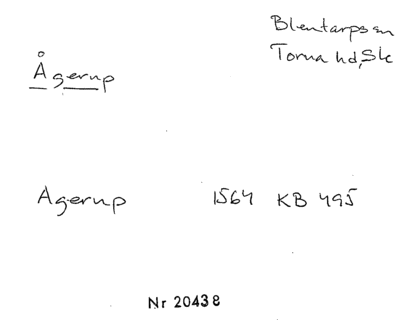 Blentarps sn
Torna hd, Sk
Ågerup
Agerup 1564 KB 495
Nr 20438